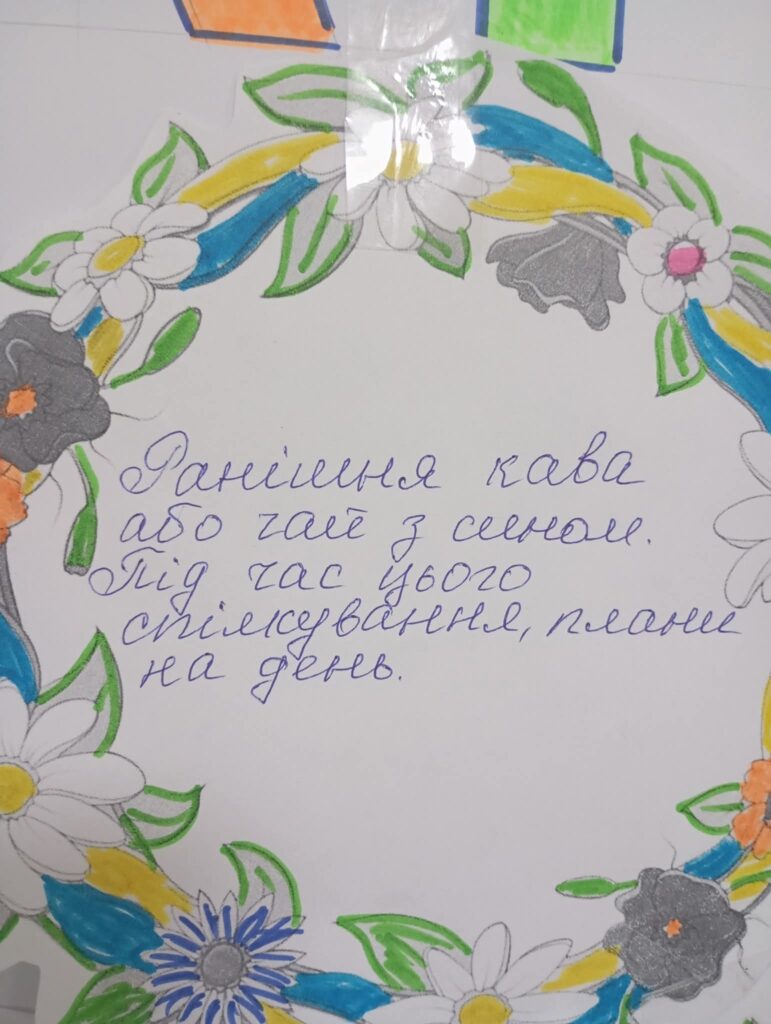 Ранішня кава
або чай з сином.
Під час цього
спілкування, плани
на день.